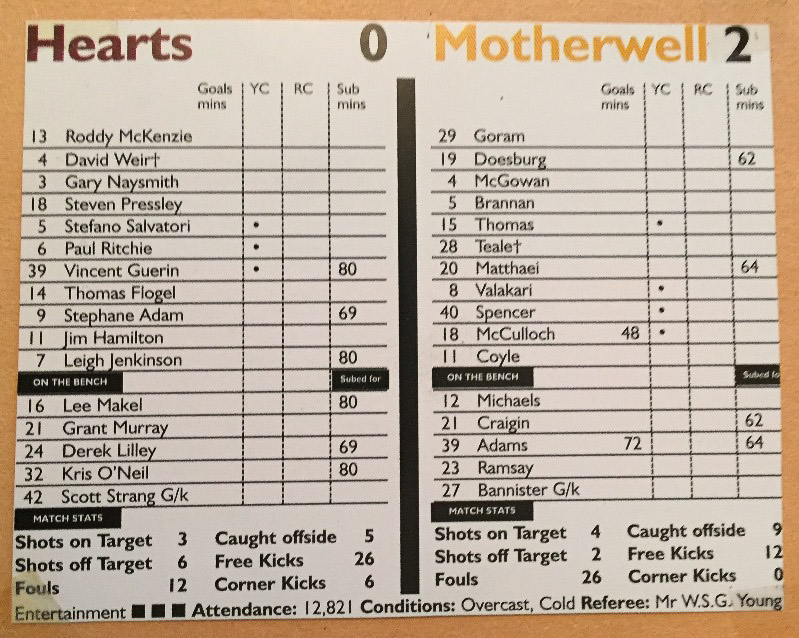 Hearts 0
Goals mins YC RC Sub mins
13 Roddy McKenzie
4 David Weir†
3 Gary Naysmith
18 Steven Pressley
5 Stefano Salvatori •
6 Paul Ritchie •
39 Vincent Guerin • 80
14 Thomas Flogel
9 Stephane Adam 69
11 Jim Hamilton
7 Leigh Jenkinson 80
ON THE BENCH Subed for
16 Lee Makel 80
21 Grant Murray
24 Derek Lilley 69
32 Kris O'Neil 80
42 Scott Strang G/k
MATCH STATS
Shots on Target 3 Caught offside 5
Shots off Target 6 Free Kicks 26
Fouls 12 Corner Kicks 6
Motherwell 2
Goals mins YC RC Sub mins
29 Goram
19 Doesburg 62
4 McGowan
5 Brannan
15 Thomas •
28 Teale†
20 Matthaei 64
8 Valakari •
40 Spencer •
18 McCulloch 48 •
11 Coyle
ON THE BENCH Subed fo
12 Michaels
21 Craigin 62
39 Adams 72 64
23 Ramsay
27 Bannister G/k
MATCH STATS
Shots on Target 4 Caught offside 9
Shots off Target 2 Free Kicks 12
Fouls 26 Corner Kicks 0
Entertainment ■ ■ ■ Attendance: 12,821 Conditions: Overcast, Cold Referee: Mr W.S.G. Young